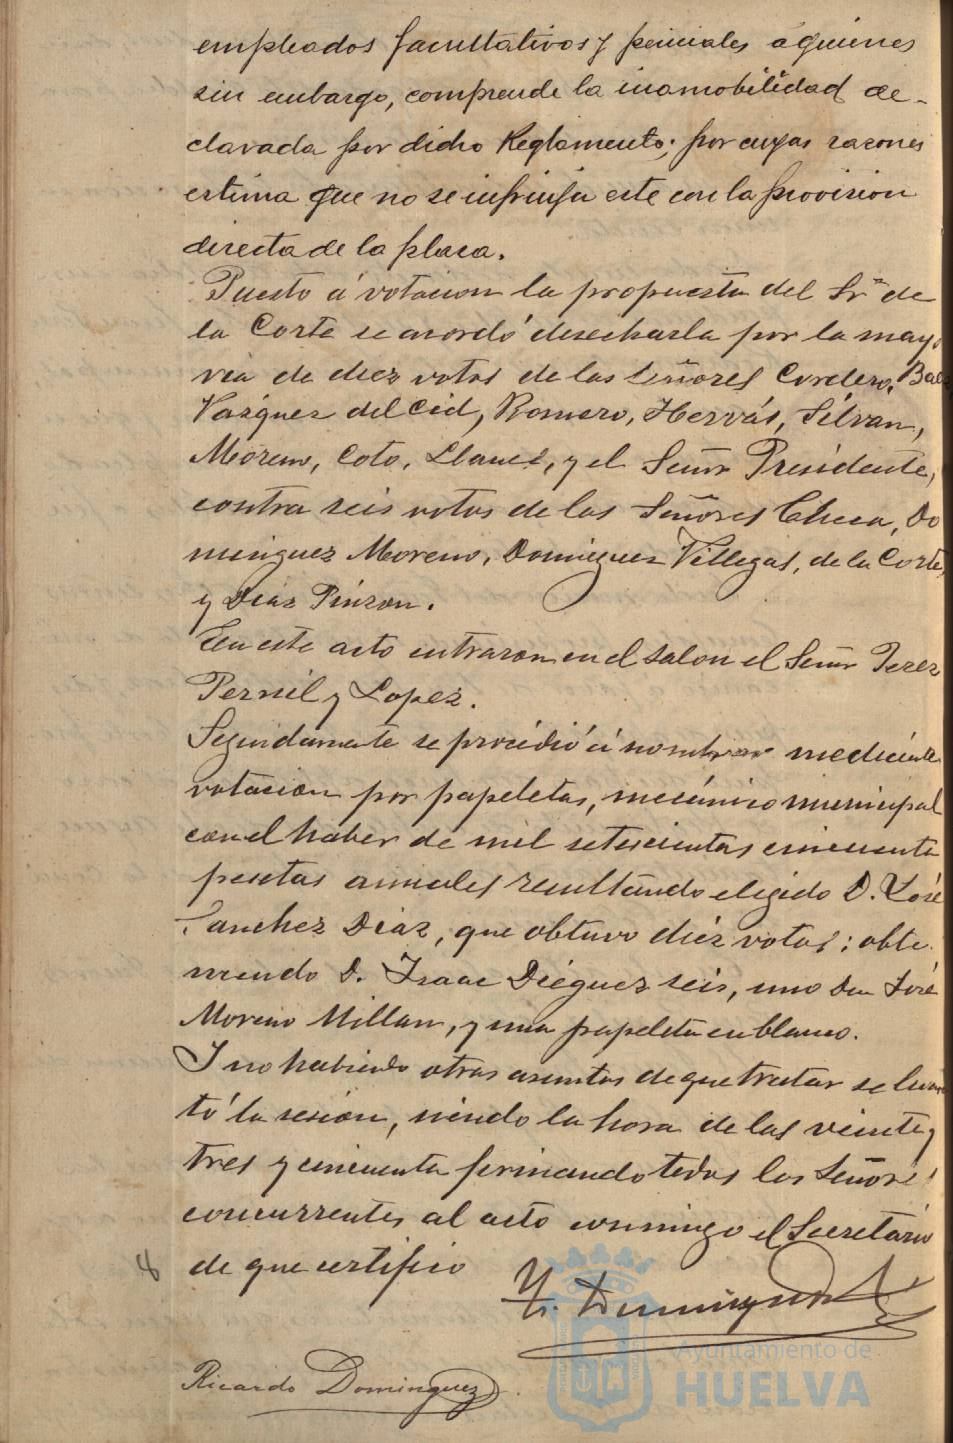 empleados facultativos y periciales á quienes
sin embargo, comprende la inamobilidad de-
clarada por dicho Reglamento; por cuyas razones
estima que no se infrinja este con la provision
directa de la plaza.
Puesto á votacion la propuesta del Sr. de
la Corte se acordó desecharla por la mayo
ria de diez votos de los Señores Cordero, Baez
Vazquez del Cid, Romero, Hervás, Silvan,
Moreno, Coto, Llanes, y el Señor Presidente,
contra seis votos de los Señores Checa, Do
minguez Moreno, Dominguez Villegas, de la Corte,
y Diaz Pinzon.
En este acto entraron en el salon el Señor Perez
Pernil y Lopez.
Seguidamente se procedió á nombrar mediante
votacion por papeletas, mecánico municipal
con el haber de mil setecientas cincuenta
pesetas anuales resultando elegido D. José
Sanchez Diaz, que obtuvo diez votos; obte
niendo D. Isaac Diéguez seis, uno Don José
Moreno Millan, y una papeleta en blanco.
Y no habiendo otros asuntos de que tratar se levan
tó la sesion, siendo la hora de las veinte y
tres y cincuenta firmando todos los Señores
concurrentes al acto conmigo el Secretario
de que certifico
8
Dominguez
Ricardo Dominguez
Ayuntamiento de
HUELVA